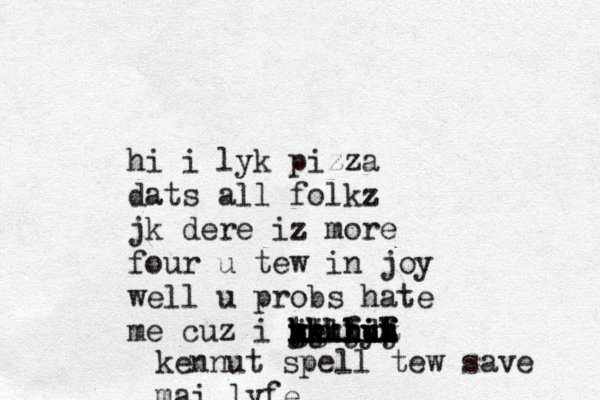 hi i lyk pizza
dats all folkz
jk dere iz more
four u tew in joy
well u probs hate
me cuz i
kennut spell tew save
mai lyfe